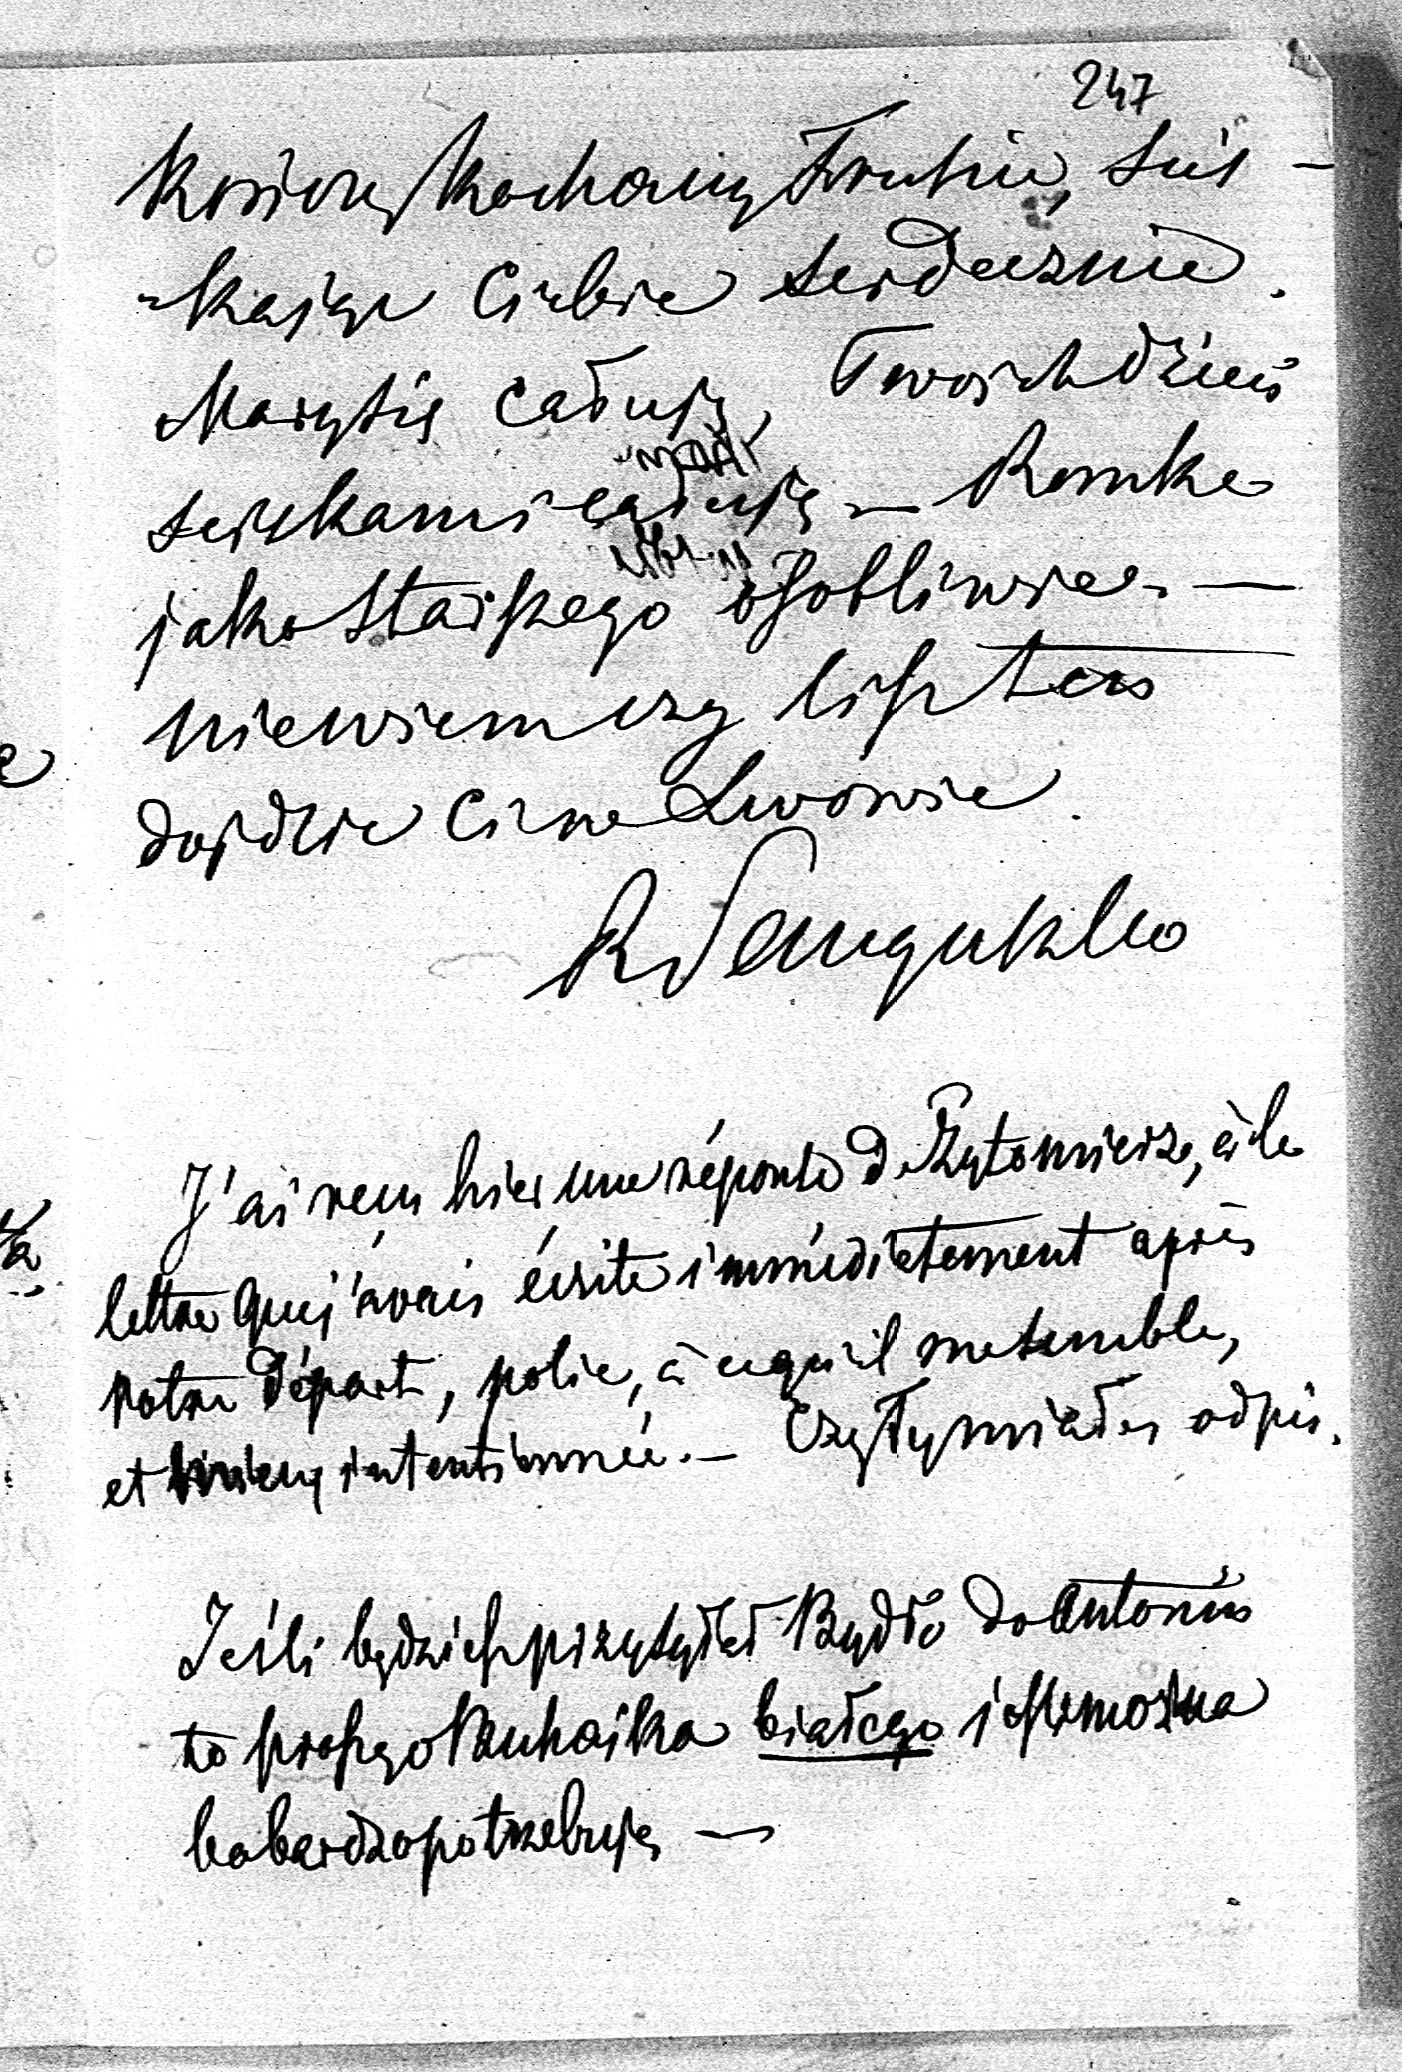 247
Kończę Kochany Fruziu, ściś-
-kając Ciebie serdecznie.
Marysię całuję, Twoich dzieci
serdkami całuję — Romka
jako Starszego osobliwie. —
niewiem czy list ten
dojdzie Ci we Lwowie.
R Sanguszko
J'ai reçu hier une réponse de Żytomierz, à la
lettre que j'avais écrite immédiatement après
notre départ, polie, à ce qu'il me semble,
et bien intentionnée. — Czy Ty miałeś odpis.
Jeśli będziesz przysyłał Bydło do Antonin
to proszę o Buhajka białego jeśli można
bo bardzo potrzebuję —